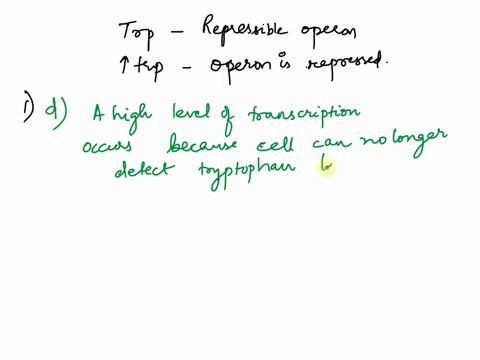 Trp - Repressible operon
↑ trp - operon is repressed.
i) d) A high level of transcription
occurs because cell can no longer
detect tryptophan